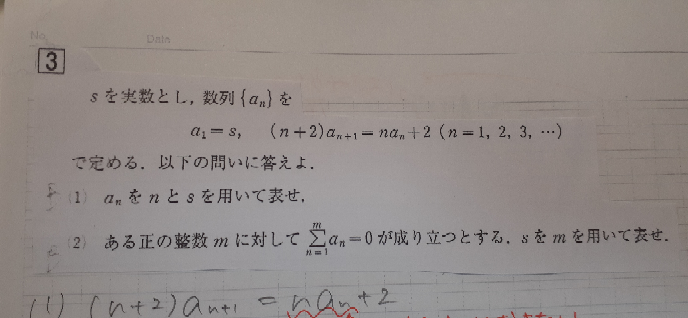 No.
Date
3
sを実数とし，数列{aₙ}を
a₁=s, (n+2)aₙ₊₁=naₙ+2 (n=1, 2, 3, …)
で定める．以下の問いに答えよ．
(1) aₙをnとsを用いて表せ．
(2) ある正の整数mに対して∑ₙ₌₁ᵐaₙ=0が成り立つとする．sをmを用いて表せ．
(1) (n+2)aₙ₊₁ = naₙ+2